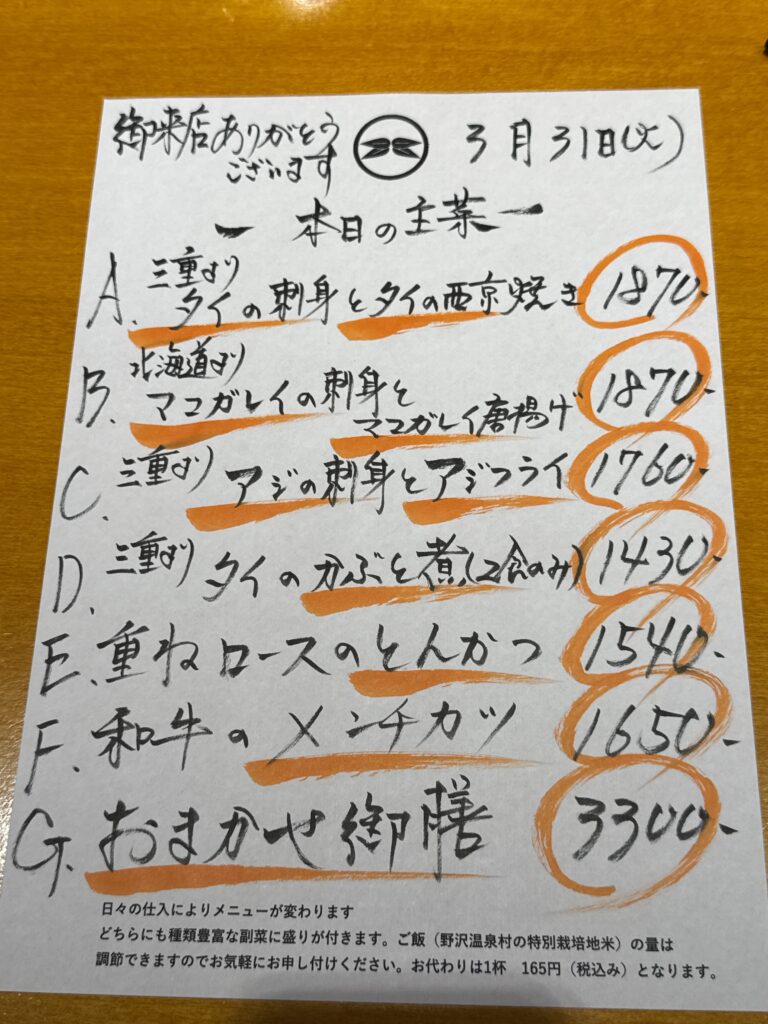 御来店ありがとう
ございます
3月31日(火)
ー 本日の主菜 ー
A. 三重より
タイの刺身とタイの西京焼き 1870-
B. 北海道より
マコガレイの刺身と
マコガレイ唐揚げ 1870-
C. 三重より アジの刺身とアジフライ 1760-
D. 三重より タイのかぶと煮(2食のみ) 1430-
E. 重ねロースのとんかつ 1540-
F. 和牛のメンチカツ 1650-
G. おまかせ御膳 3300-
日々の仕入によりメニューが変わります
どちらにも種類豊富な副菜に盛りが付きます。ご飯（野沢温泉村の特別栽培地米）の量は
調節できますのでお気軽にお申し付けください。お代わりは1杯 165円（税込み）となります。